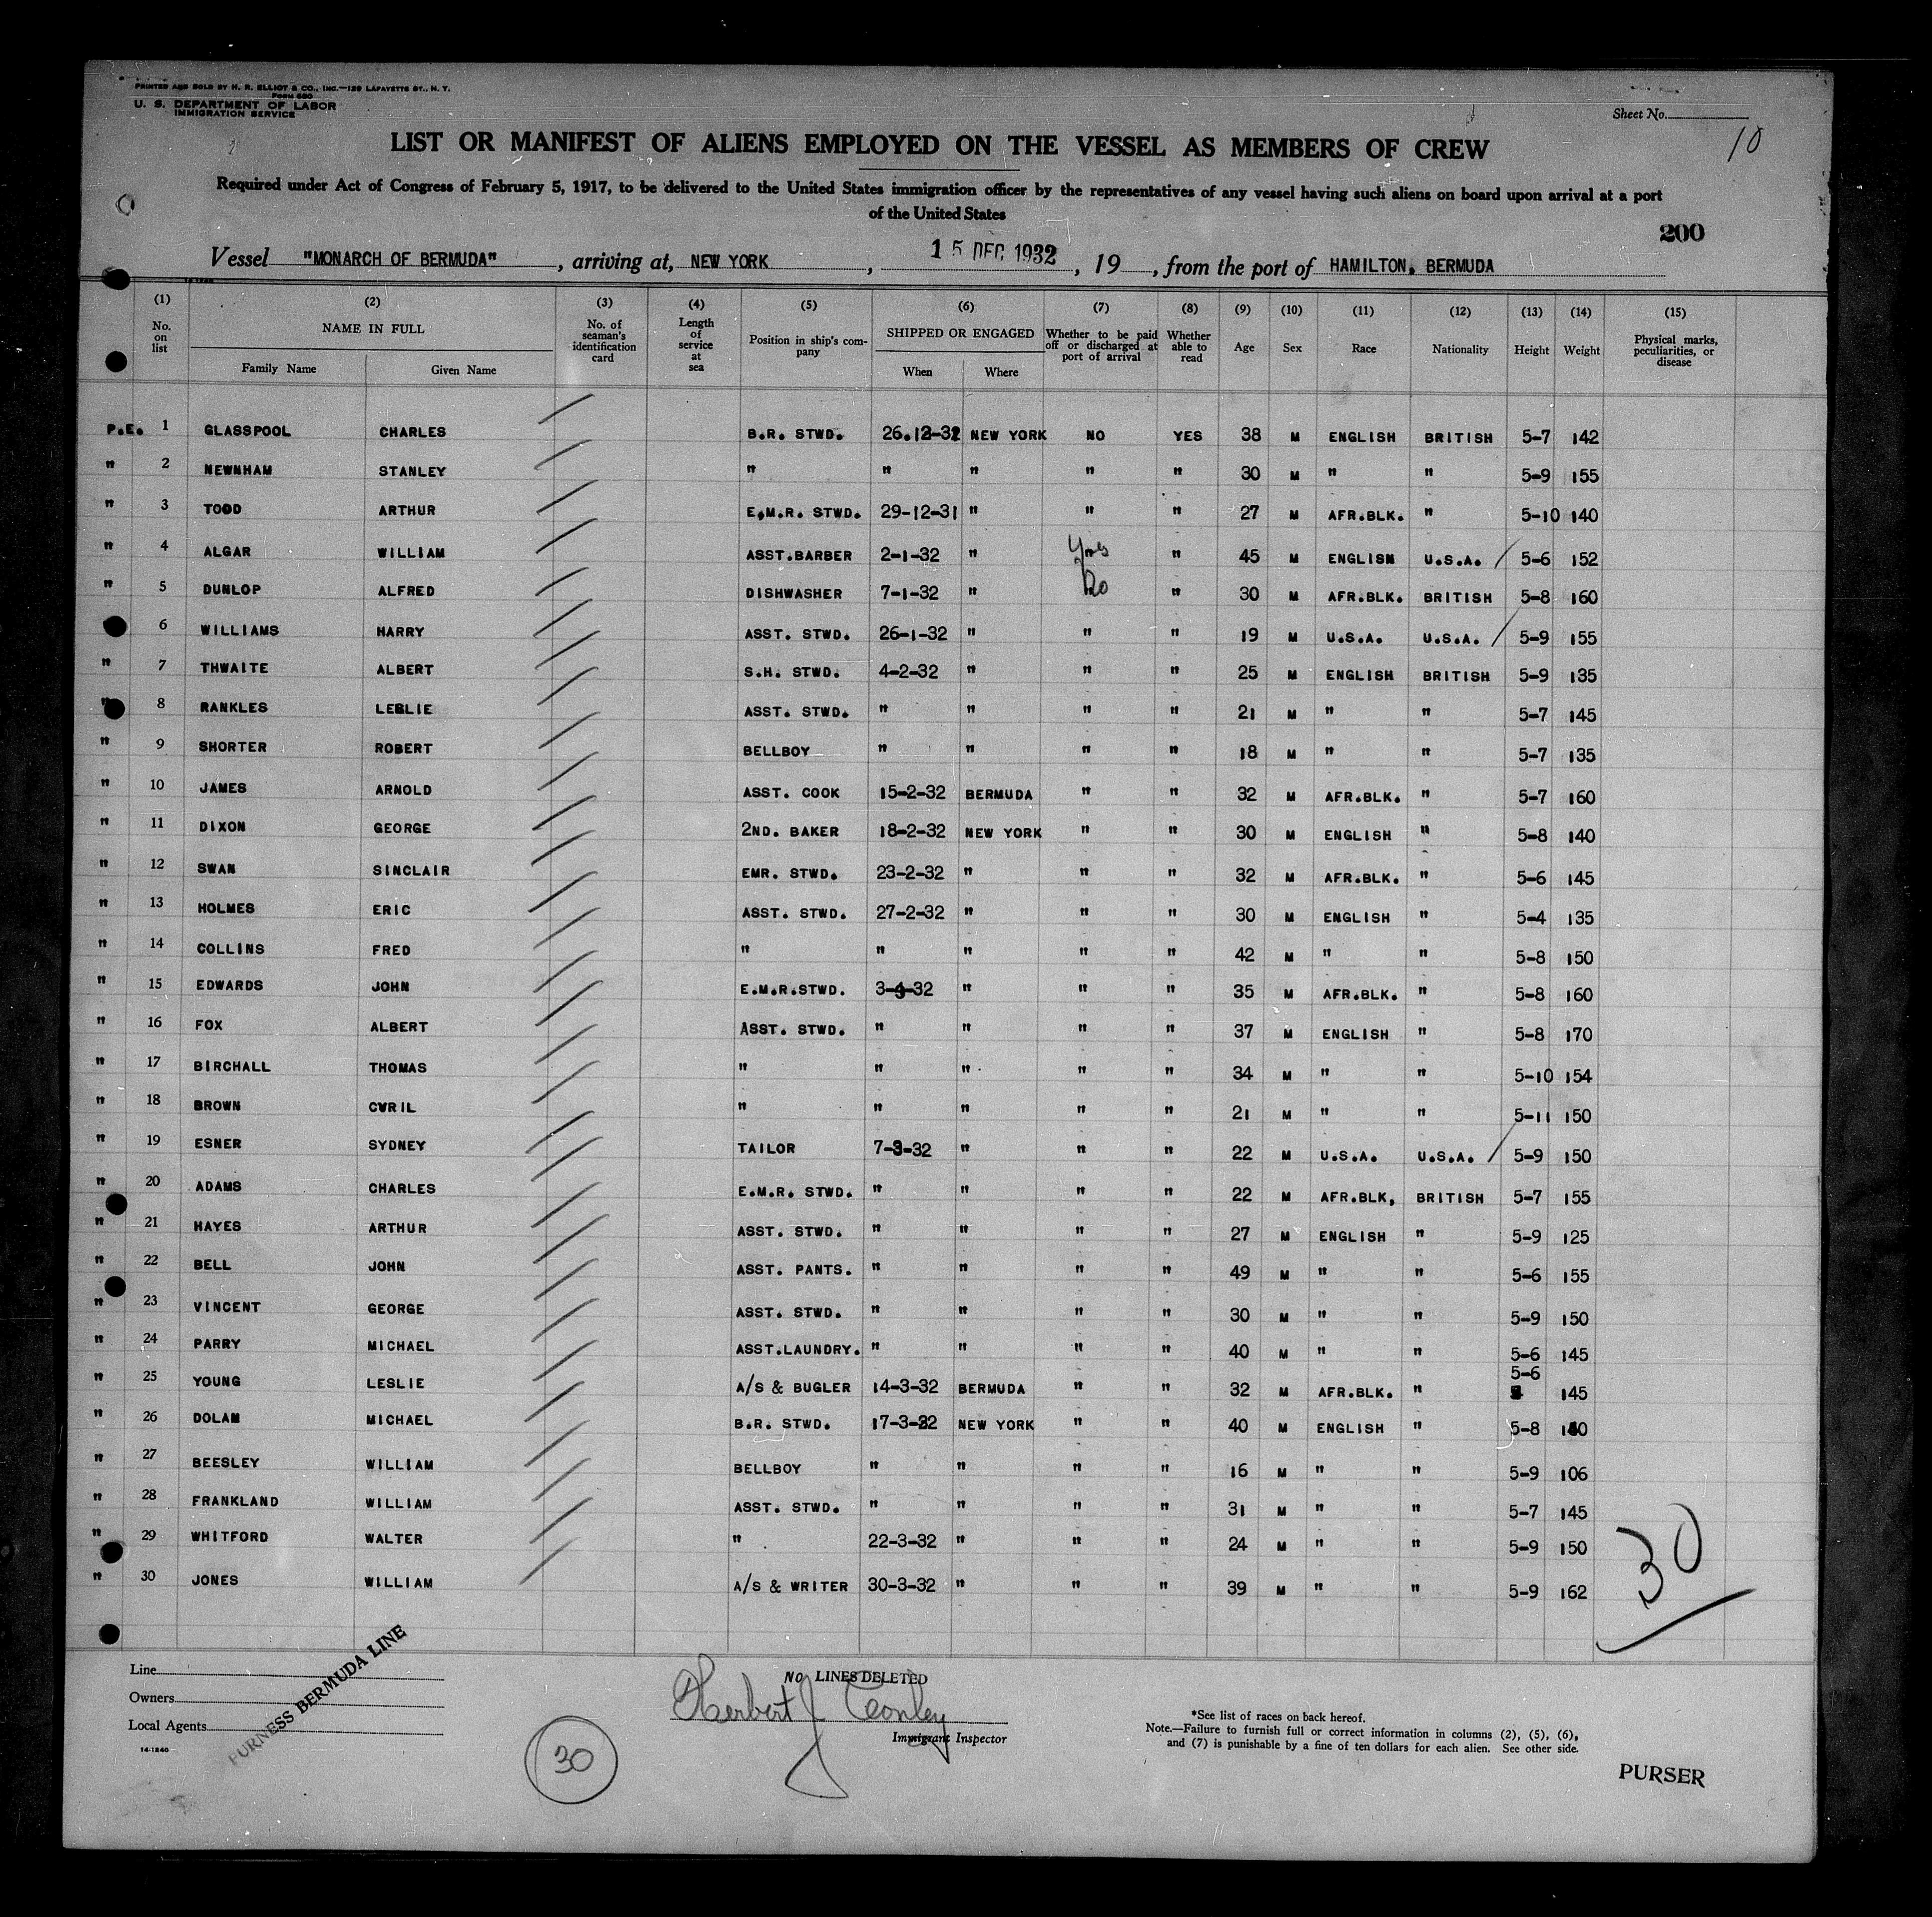 PRINTED AND SOLD BY H. R. ELLIOT & CO., INC.—129 LAFAYETTE ST., N. Y.
FORM 680
U. S. DEPARTMENT OF LABOR
IMMIGRATION SERVICE
Sheet No.
10
LIST OR MANIFEST OF ALIENS EMPLOYED ON THE VESSEL AS MEMBERS OF CREW
Required under Act of Congress of February 5, 1917, to be delivered to the United States immigration officer by the representatives of any vessel having such aliens on board upon arrival at a port
of the United States
200
Vessel "MONARCH OF BERMUDA", arriving at, NEW YORK, 15 DEC 1932, 19, from the port of HAMILTON, BERMUDA
14-1240
(1) (2) (3) (4) (5) (6) (7) (8) (9) (10) (11) (12) (13) (14) (15)
No. on list NAME IN FULL Family Name Given Name No. of seaman's identification card Length of service at sea Position in ship's company SHIPPED OR ENGAGED When Where Whether to be paid off or discharged at port of arrival Whether able to read Age Sex Race Nationality Height Weight Physical marks, peculiarities, or disease
P.E. 1 GLASSPOOL CHARLES B.R. STWD. 26.12-31 NEW YORK NO YES 38 M ENGLISH BRITISH 5-7 142
" 2 NEWNHAM STANLEY " " " " " 30 M " " 5-9 155
" 3 TODD ARTHUR E.M.R. STWD. 29-12-31 " " " 27 M AFR.BLK. " 5-10 140
" 4 ALGAR WILLIAM ASST.BARBER 2-1-32 " Yes " 45 M ENGLISH U.S.A. / 5-6 152
" 5 DUNLOP ALFRED DISHWASHER 7-1-32 " No " 30 M AFR.BLK. BRITISH 5-8 160
" 6 WILLIAMS HARRY ASST. STWD. 26-1-32 " " " 19 M U.S.A. U.S.A. / 5-9 155
" 7 THWAITE ALBERT S.H. STWD. 4-2-32 " " " 25 M ENGLISH BRITISH 5-9 135
" 8 RANKLES LESLIE ASST. STWD. " " " " 21 M " " 5-7 145
" 9 SHORTER ROBERT BELLBOY " " " " 18 M " " 5-7 135
" 10 JAMES ARNOLD ASST. COOK 15-2-32 BERMUDA " " 32 M AFR.BLK. " 5-7 160
" 11 DIXON GEORGE 2ND. BAKER 18-2-32 NEW YORK " " 30 M ENGLISH " 5-8 140
" 12 SWAN SINCLAIR EMR. STWD. 23-2-32 " " " 32 M AFR.BLK. " 5-6 145
" 13 HOLMES ERIC ASST. STWD. 27-2-32 " " " 30 M ENGLISH " 5-4 135
" 14 COLLINS FRED " " " " " 42 M " " 5-8 150
" 15 EDWARDS JOHN E.M.R.STWD. 3-3-32 " " " 35 M AFR.BLK. " 5-8 160
" 16 FOX ALBERT ASST. STWD. " " " " 37 M ENGLISH " 5-8 170
" 17 BIRCHALL THOMAS " " " " " 34 M " " 5-10 154
" 18 BROWN CYRIL " " " " " 21 M " " 5-11 150
" 19 ESNER SYDNEY TAILOR 7-3-32 " " " 22 M U.S.A. U.S.A. / 5-9 150
" 20 ADAMS CHARLES E.M.R. STWD. " " " " 22 M AFR.BLK, BRITISH 5-7 155
" 21 HAYES ARTHUR ASST. STWD. " " " " 27 M ENGLISH " 5-9 125
" 22 BELL JOHN ASST. PANTS. " " " " 49 M " " 5-6 155
" 23 VINCENT GEORGE ASST. STWD. " " " " 30 M " " 5-9 150
" 24 PARRY MICHAEL ASST.LAUNDRY. " " " " 40 M " " 5-6 145
" 25 YOUNG LESLIE A/S & BUGLER 14-3-32 BERMUDA " " 32 M AFR.BLK. " 5-6 145
" 26 DOLAN MICHAEL B.R. STWD. 17-3-32 NEW YORK " " 40 M ENGLISH " 5-8
" 27 BEESLEY WILLIAM BELLBOY " " " " 16 M " " 5-9 106
" 28 FRANKLAND WILLIAM ASST. STWD. " " " " 31 M " " 5-7 145
" 29 WHITFORD WALTER " 22-3-32 " " " 24 M " " 5-9 150
" 30 JONES WILLIAM A/S & WRITER 30-3-32 " " " 39 M " " 5-9 162
30
Line
Owners
Local Agents
FURNESS BERMUDA LINE
14-1240
30
NO LINES DELETED
Herbert J
Immigrant Inspector
*See list of races on back hereof.
Note.—Failure to furnish full or correct information in columns (2), (5), (6),
and (7) is punishable by a fine of ten dollars for each alien. See other side.
PURSER